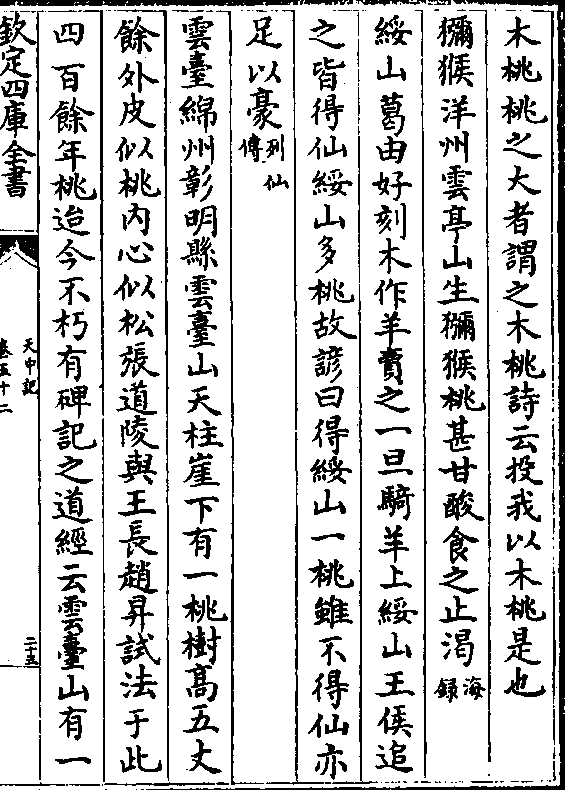 木桃桃之大者謂之木桃詩云投我以木桃是也
獼猴洋州雲亭山生獼猴桃甚甘酸食之止渴海錄
綏山葛由好刻木作羊賣之一旦騎羊上綏山王侯追
之皆得仙綏山多桃故諺曰得綏山一桃雖不得仙亦
足以豪列仙傳
雲臺綿州彰明縣雲臺山天柱崖下有一桃樹高五丈
餘外皮似桃内心似松張道陵與王長趙昇試法于此
四百餘年桃迨今不朽有碑記之道經云雲臺山有一
欽定四庫全書
天中記
卷五十二
二十五